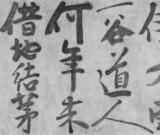 谷道人
何年来
借地結茅